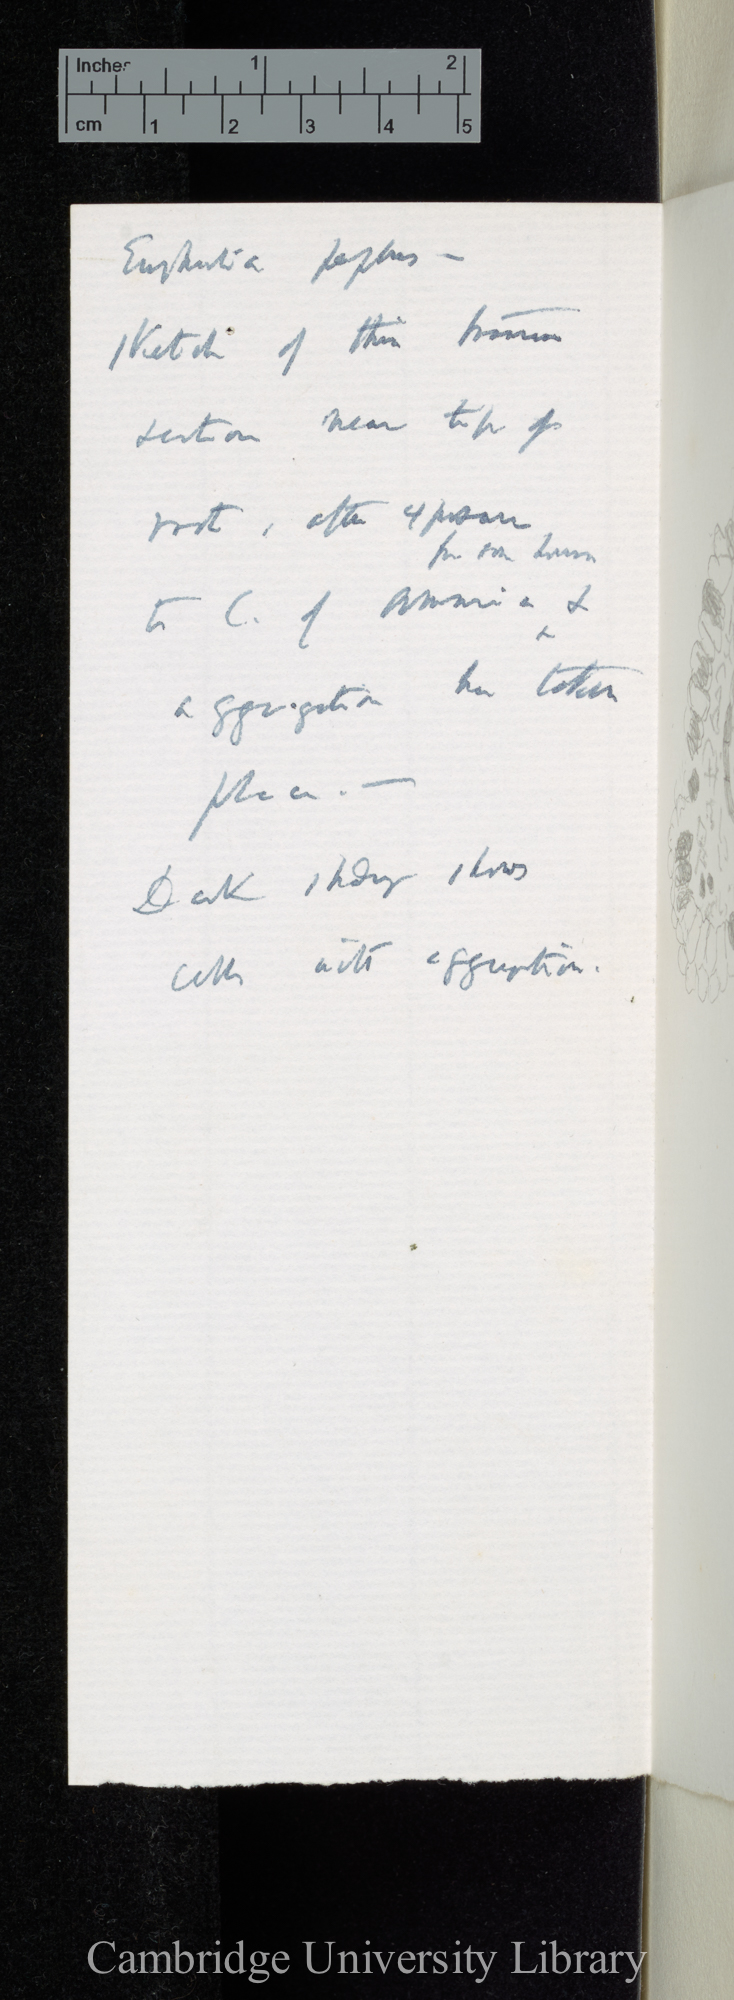 Inches 1 2
cm 1 2 3 4 5
Euphorbia peplus —
Sketch of thin transverse
section near tip of
root, after exposure
for some hours
to C. of Ammonia &
aggregation has taken
place. —
Dark shading shows
cells with aggregation.
Cambridge University Library